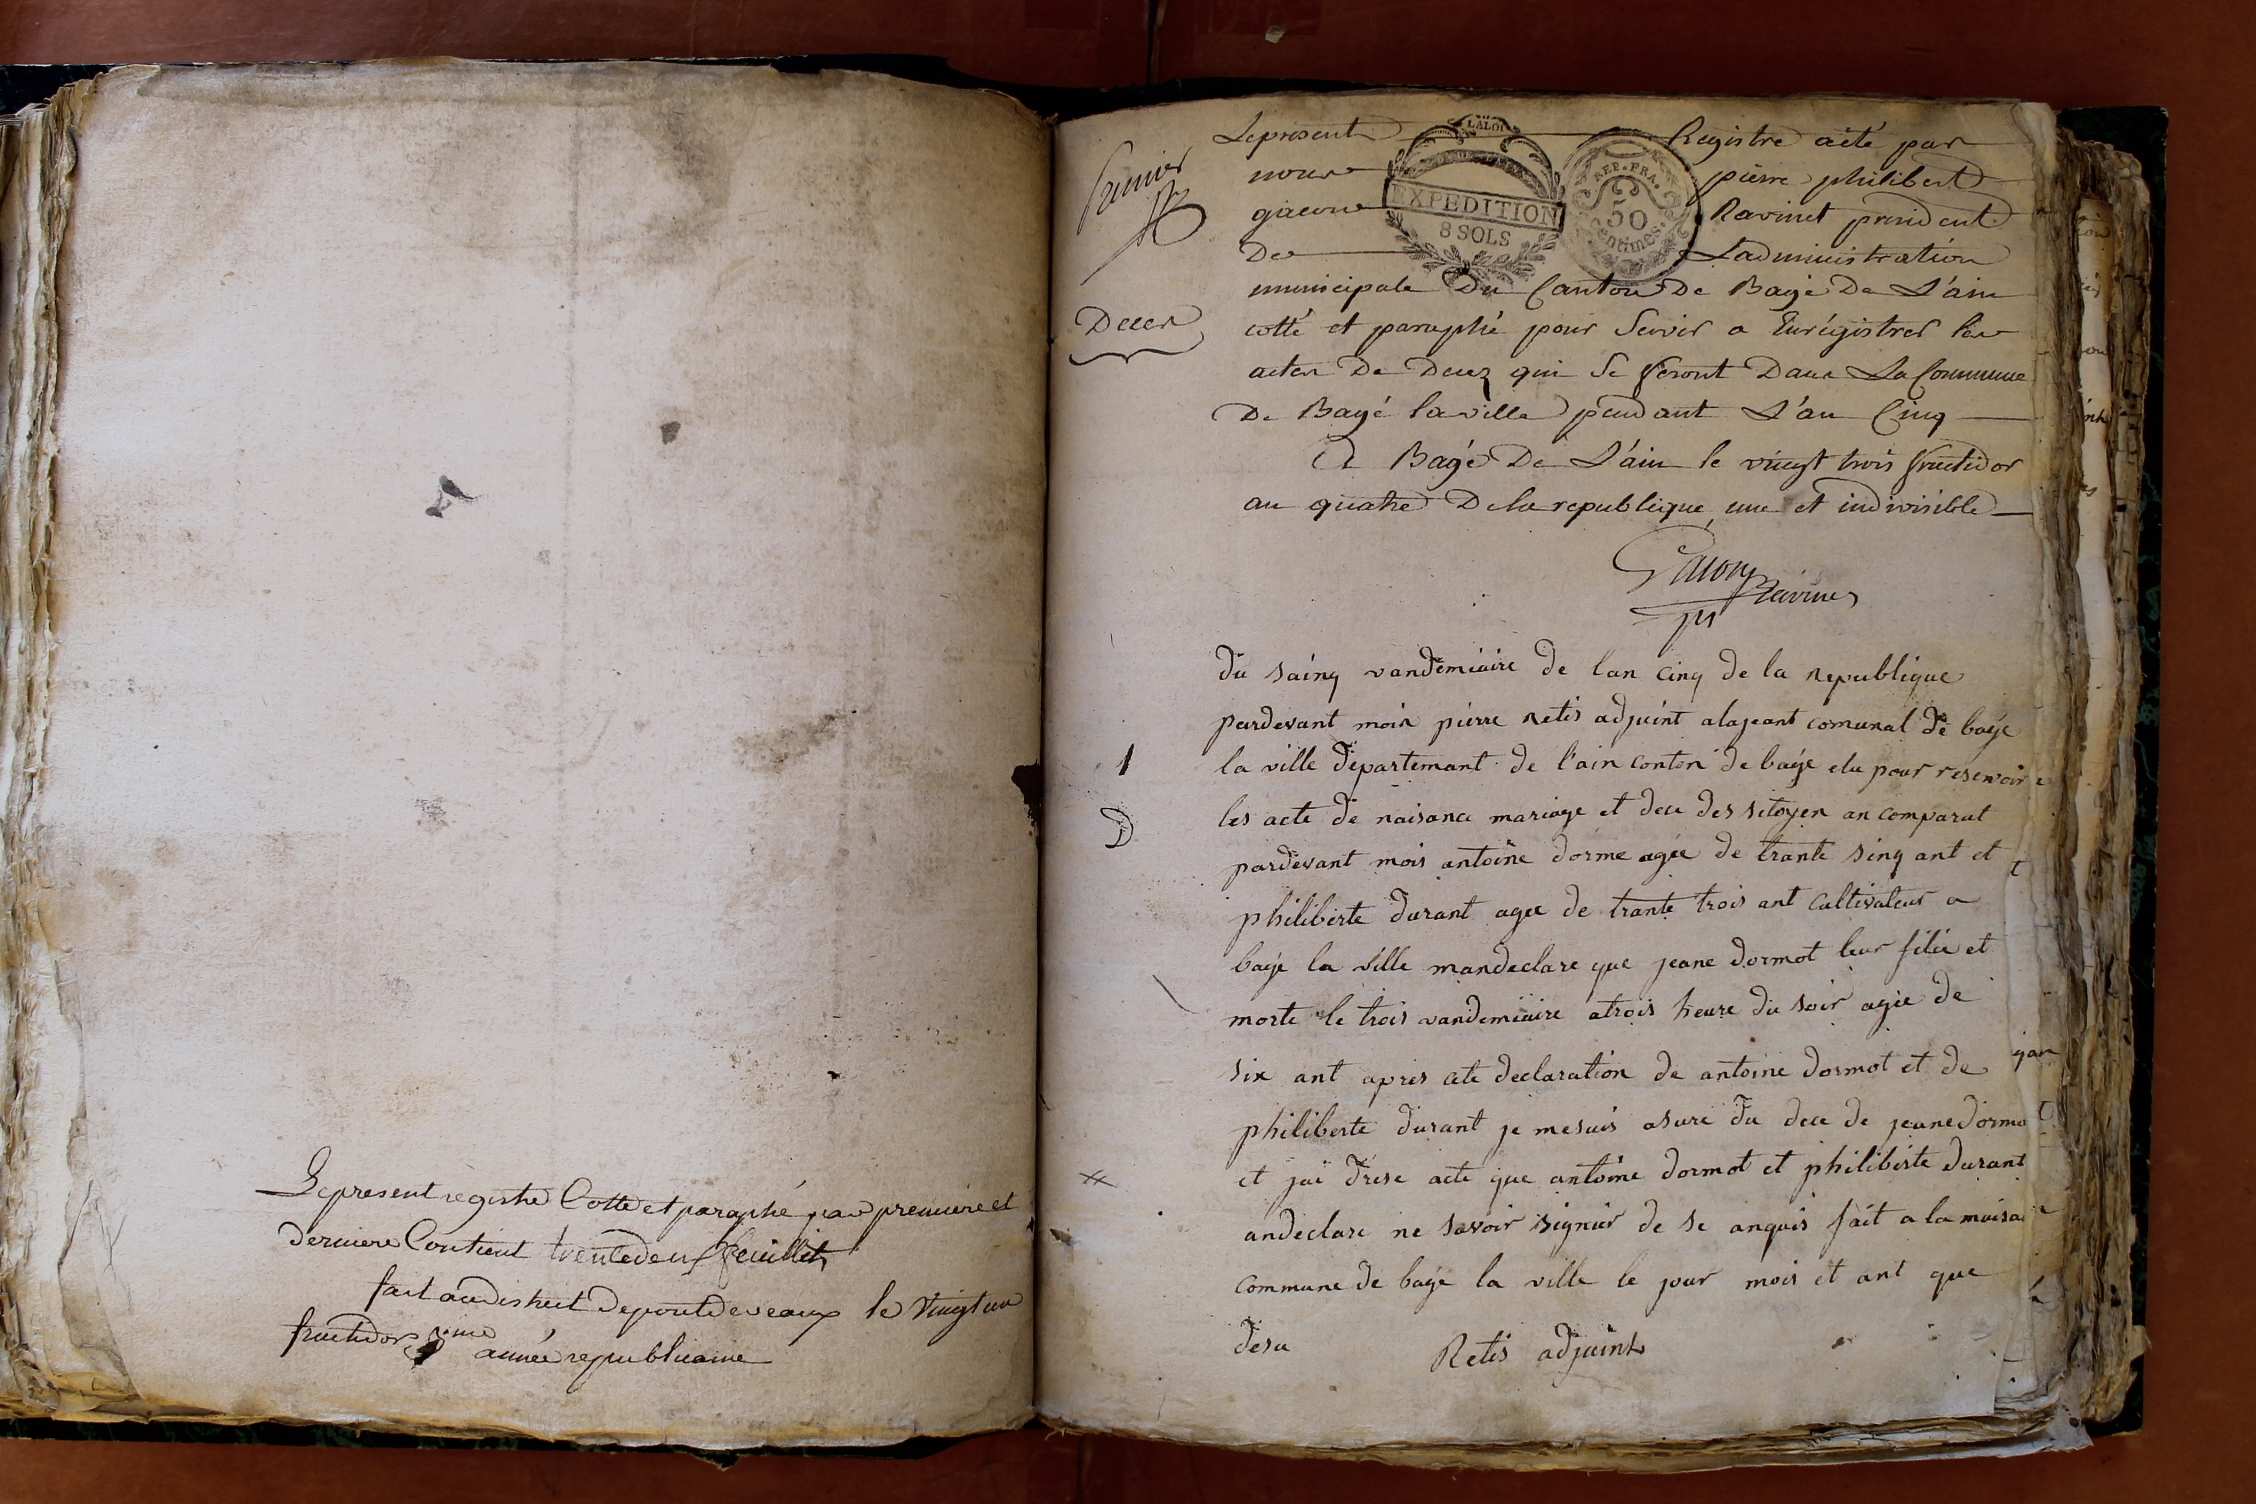 Le present registre Cotté et paraphé par premiere et
derniere Contient trentedeux feuillets
fait au district de pontdeveaux le vingt un
fructidor 3eme année republicaine
Premier
Deces
LA LOI
EXPEDITION
8 SOLS
REP. FRA.
50
Centimes
Le present Registre cité par
nous pierre philibert
gacon Ravinet president
De L'administration
municipale Du Canton De Bagé De L'ain
cotté et paraphé pour Servir a Enrégistrer les
actes De Decez qui Se feront Dans La Commune
De Bagé la ville pendant L'an Cinq
A Bagé De L'ain le vingt trois fructidor
an quatre De la republique, une et indivisible
Gacon Ravinet
du sainq vandemiaire de lan cinq de la republique
pardevant mois pierre retis adjuint alajeant comunal de bage
1
la ville departemant de l'ain conton de bage elu pour resevoire
D
les acte de naisance mariage et dece des sitoyen an comparut
pardevant mois antoine dorme agée de trante sinq ant et
philiberte durant agee de trante trois ant cultivateur a
baje la ville mandeclare que jeane dormot leur filie et
morte le trois vandemiaire atrois heure du soir agée de
six ant apres cete declaration de antoine dormot et de
philiberte durant je mesuis asure du dece de jeane dormot
et jai drese acte que antoine dormot et philiberte durant
andeclare ne savoir signier de se anquis fait a la maison
commune de bage la ville le jour mois et ant que
desu
Retis adjuint